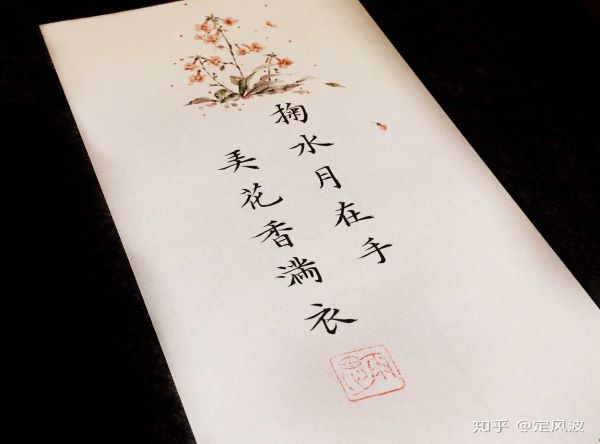 掬水月在手
弄花香满衣
知乎 @定风波